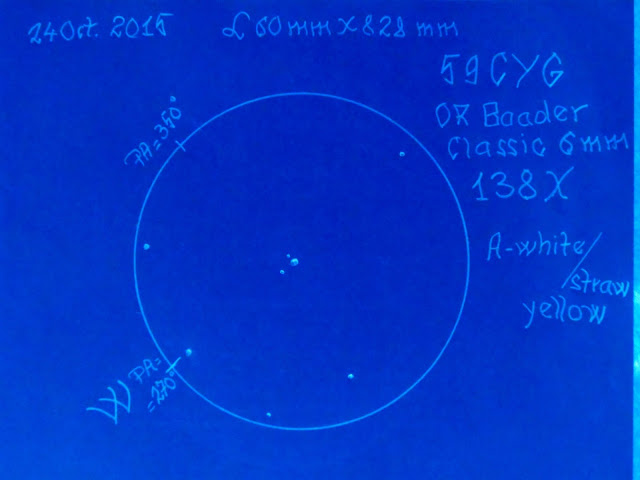 24 Oct. 2015
L 60 mm X 828 mm
59 CYG
OR Baader
Classic 6mm
138X
PA=350°
A-white/
straw
yellow
W PA=
=270°